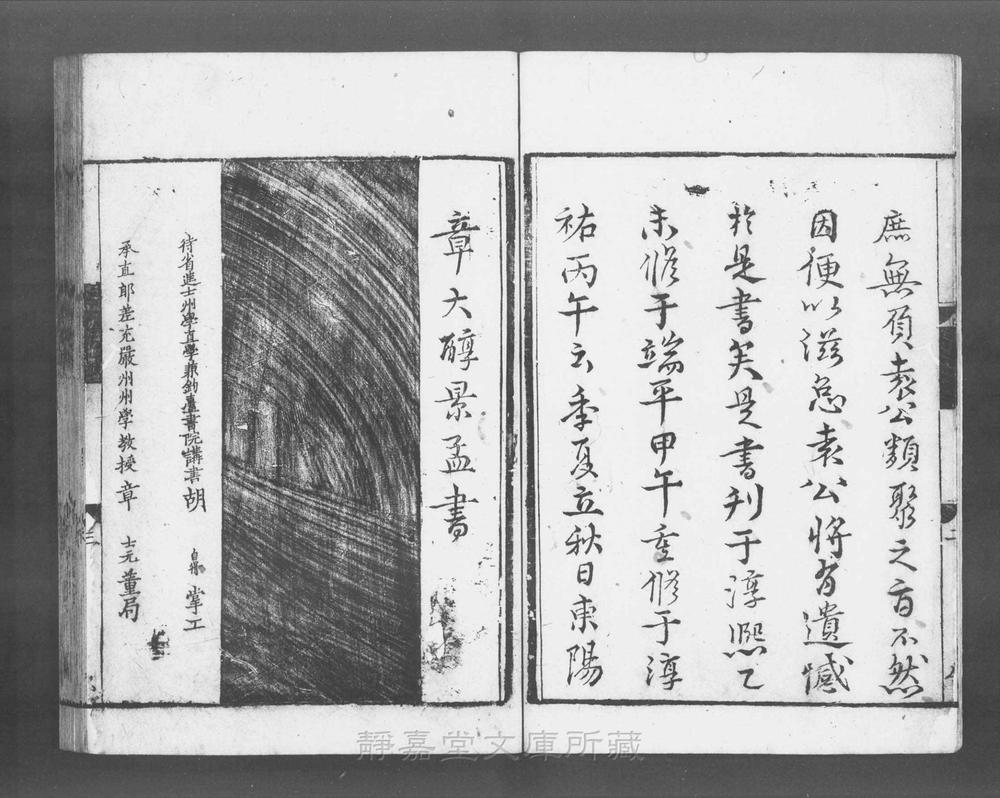 庶無負袁公類聚之旨不然
因便以滋怠袁公將有遺憾
於是書矣是書刋于淳熈乙
未修于端平甲午重修于淳
祐丙午云季夏立秋日東陽
章大醇景孟書
待省進士州學直學兼釣臺書院講書胡 自牀 掌工
承直郎差充嚴州州學教授章 士元 董局
二
三
靜嘉堂文庫所藏